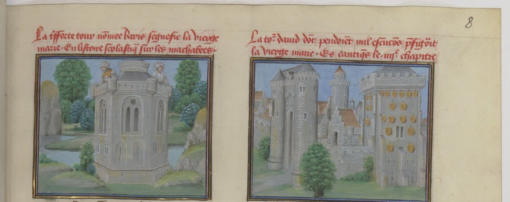 8
La tisserte tour nommee Baris segnefie la vierge
marie . En listore scolastiq sur les machabees .
La tor david dot pendoiet mil escucos pfiguroit
la vierge marie . Es cantiqs le iiije chapitre